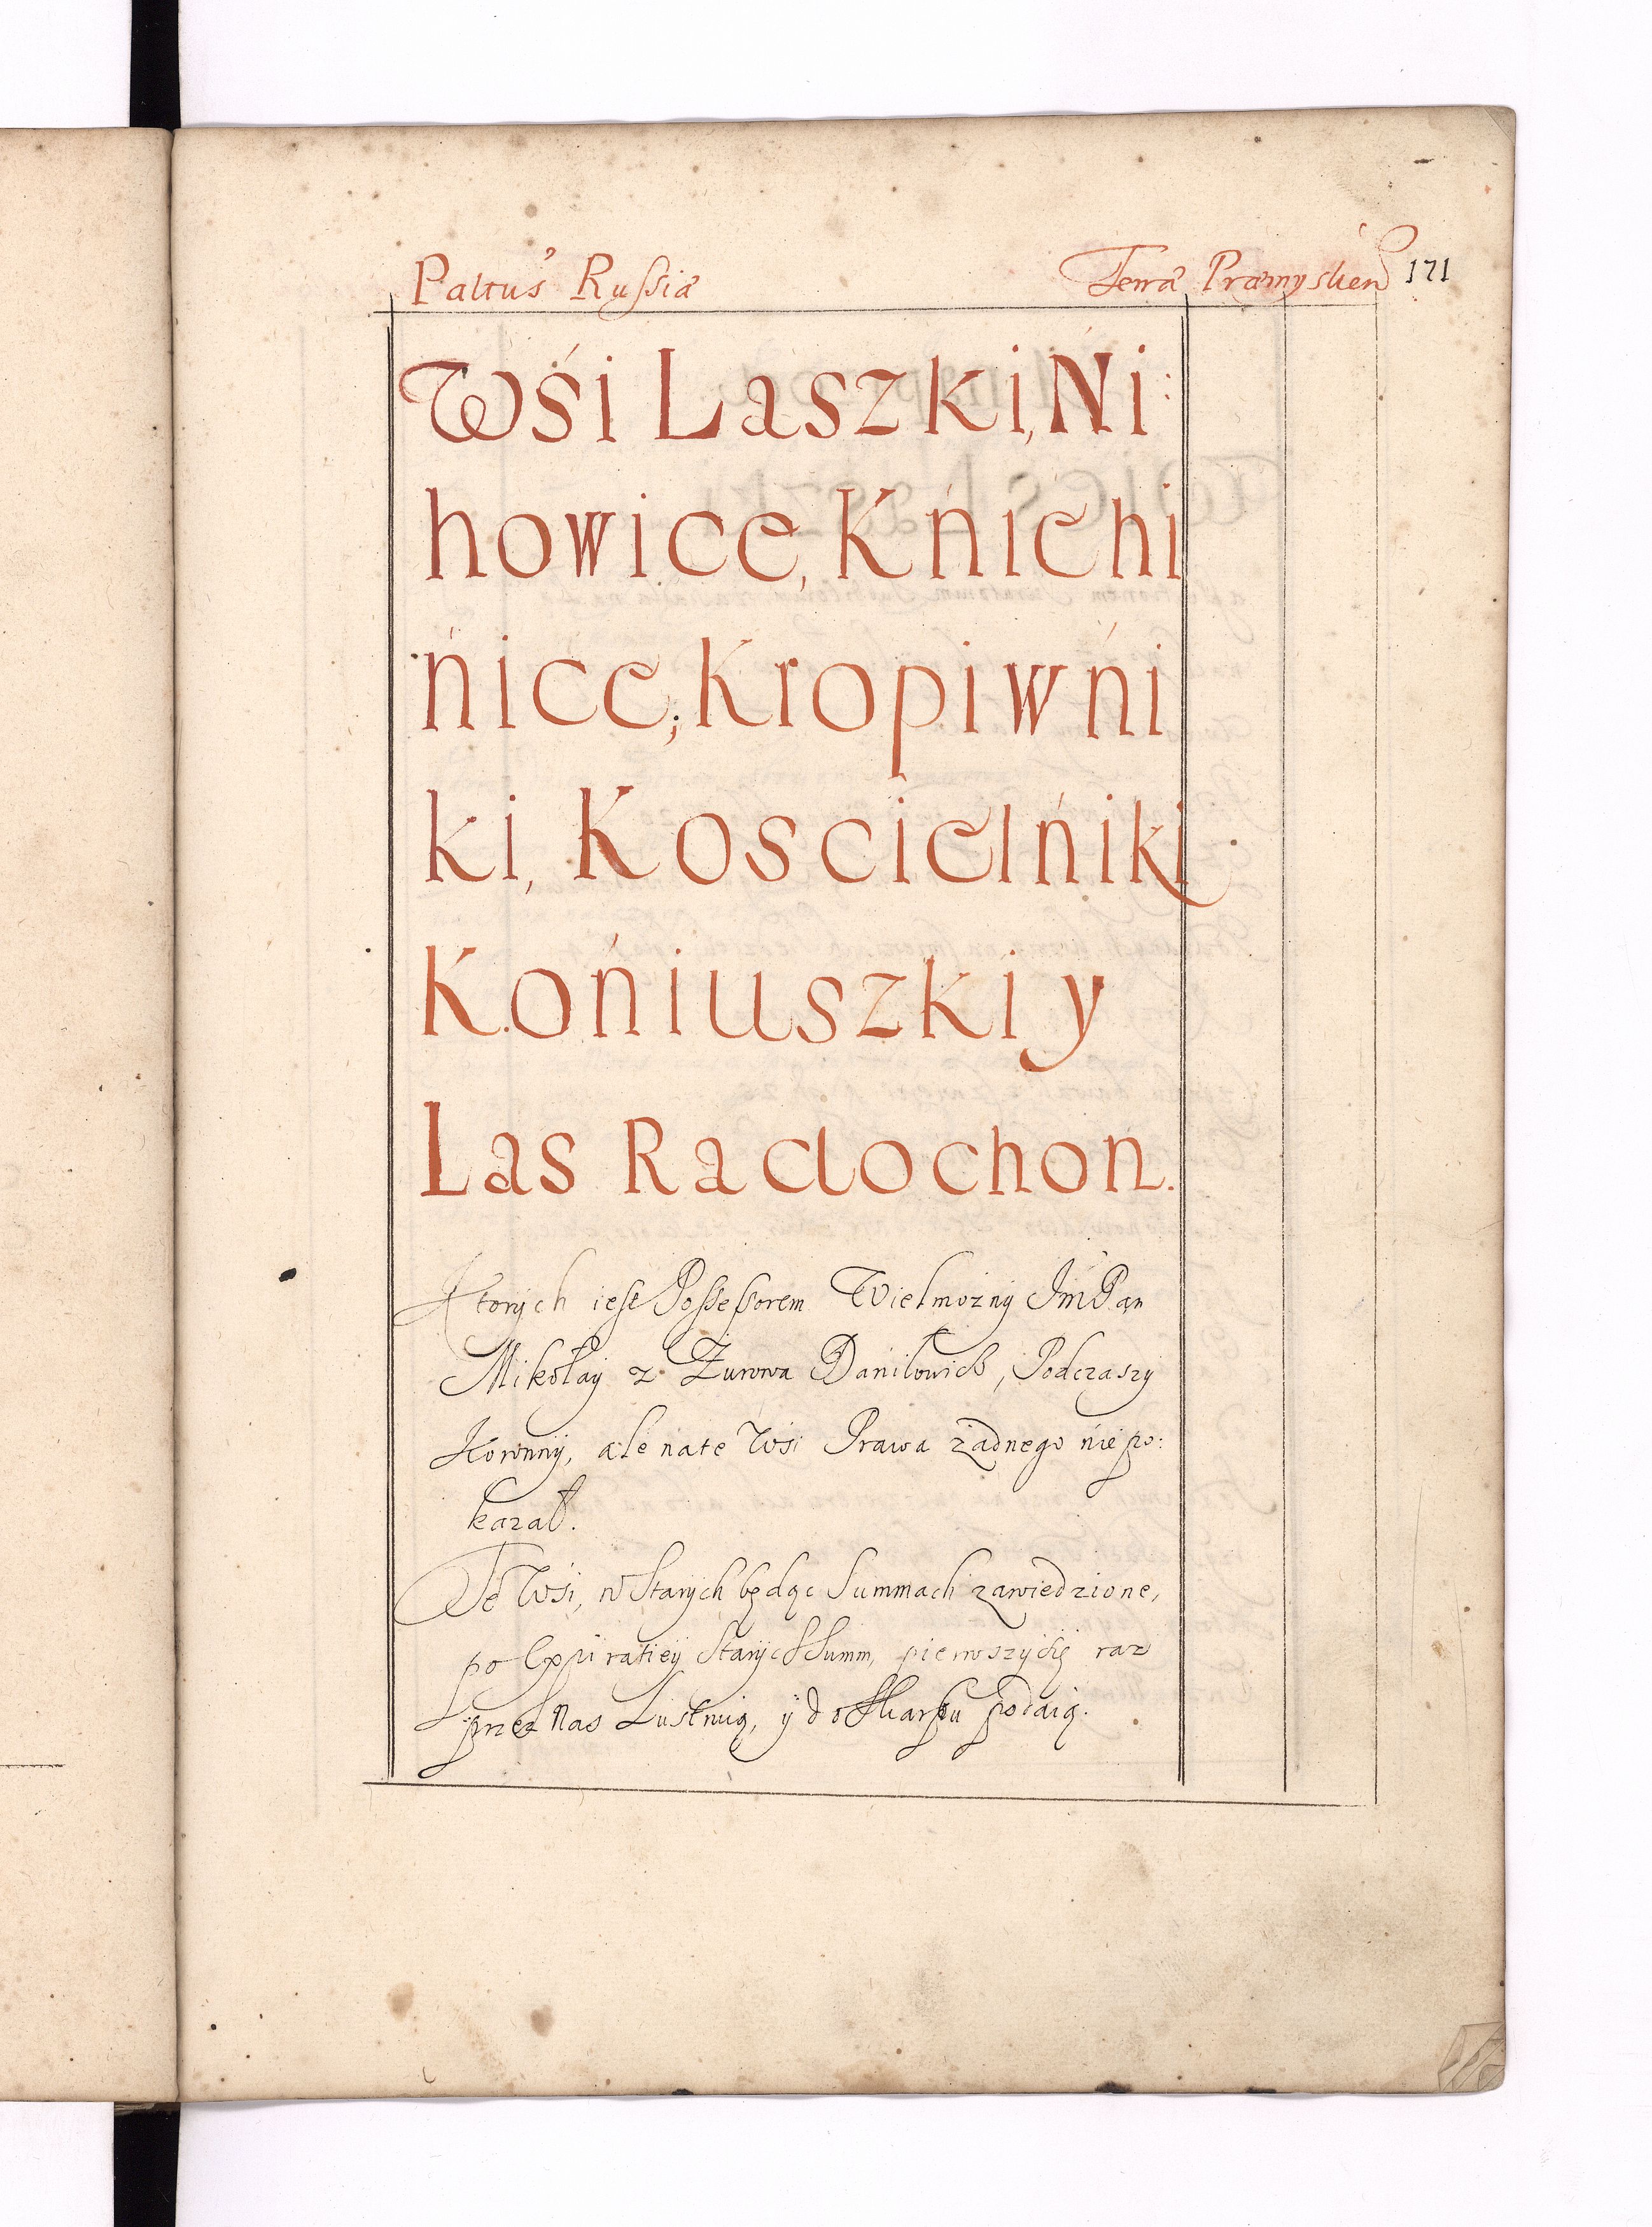 Paltus Russiæ
Terræ Præmyslien 171
Wśi Laszki, Ni:
howice, Kńichi
ńice, Kropiwńi
ki, Koscielńiki
Końiuszki y
Las Radochon.
Ktorych iest Possessorem Wielmożny JmPan
Mikołay z Żurowa Daniłowicz, Podczaszy
Koronny, ale na te Wsi Prawa żadnego nie po:
kazał.
Te Wsi, w Starych będąc Summach zawiedzione,
po Expiratiey Starych Summ, pierwszy się raz
przez Nas Lustruią, y do Skarbu podaią.